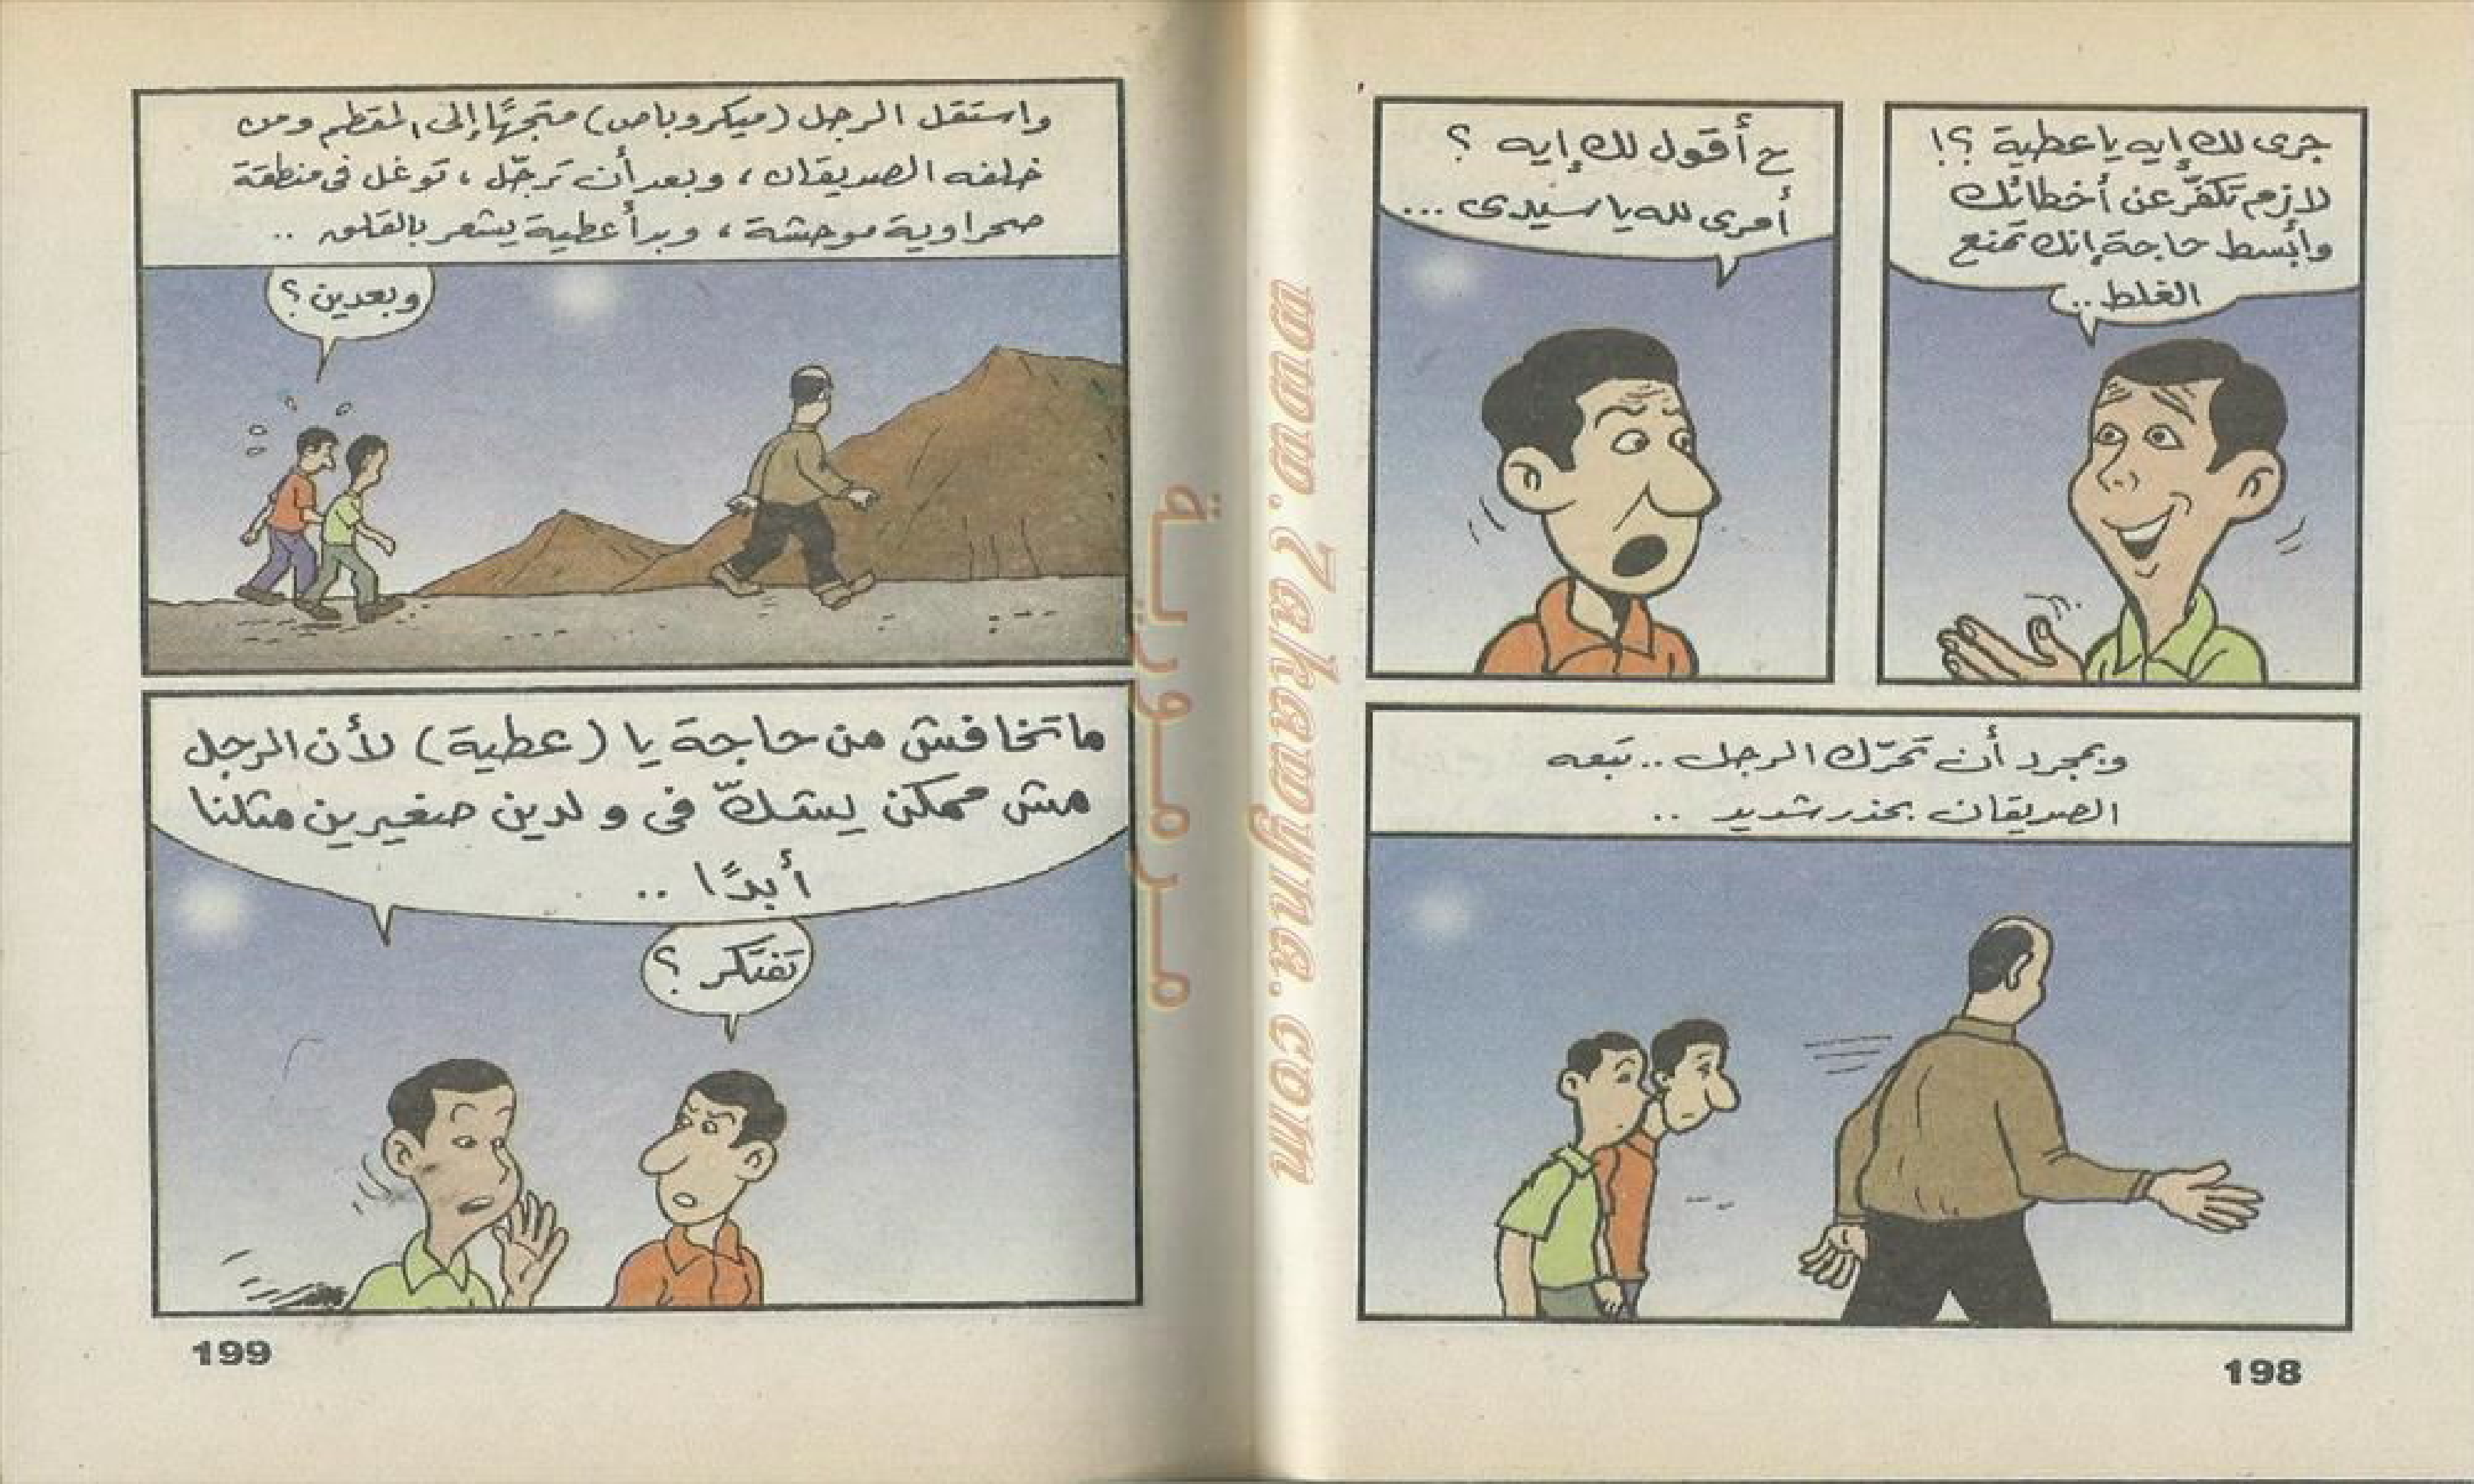 جرى لك إيه يا عطية ؟!
لازم تكفّر عن أخطائك
وأبسط حاجة إنك تمنع
الغلط ..
ح أقول لك إيه ؟
أمرى لله يا سيدى ...
وبمجرد أن تحرّك الرجل .. تبعه
الصديقان بحذر شديد ..
198
واستقل الرجل (ميكروباص) متجهًا إلى المقطم ومن
خلفه الصديقان ، وبعد أن ترجّل ، توغل فى منطقة
صحراوية موحشة ، وبدأ عطية يشعر بالقلق ..
وبعدين ؟
ماتخافش من حاجة يا (عطية) لأن الرجل
مش ممكن يشكّ فى ولدين صغيرين مثلنا
أبدًا ..
تفتكر ؟
199
مرمورية
www.Zakawyna.com